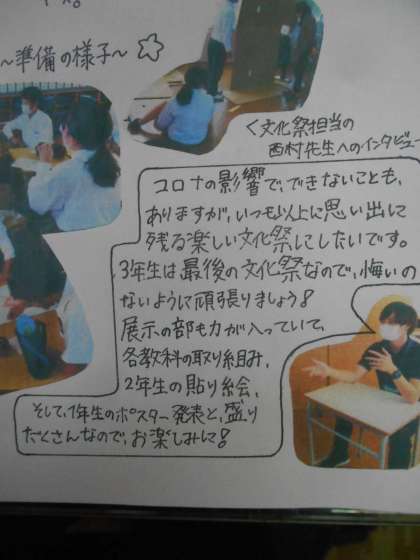 〜準備の様子〜☆
<文化祭担当の
西村先生へのインタビュー
コロナの影響で、できないことも、
ありますが、いつも以上に思い出に
残る楽しい文化祭にしたいです。
3年生は最後の文化祭なので、悔いの
ないように頑張りましょう!
展示の部も力が入っていて、
各教科の取り組み、
2年生の貼り絵、
そして、1年生のポスター発表と、盛り
だくさんなので、お楽しみに!